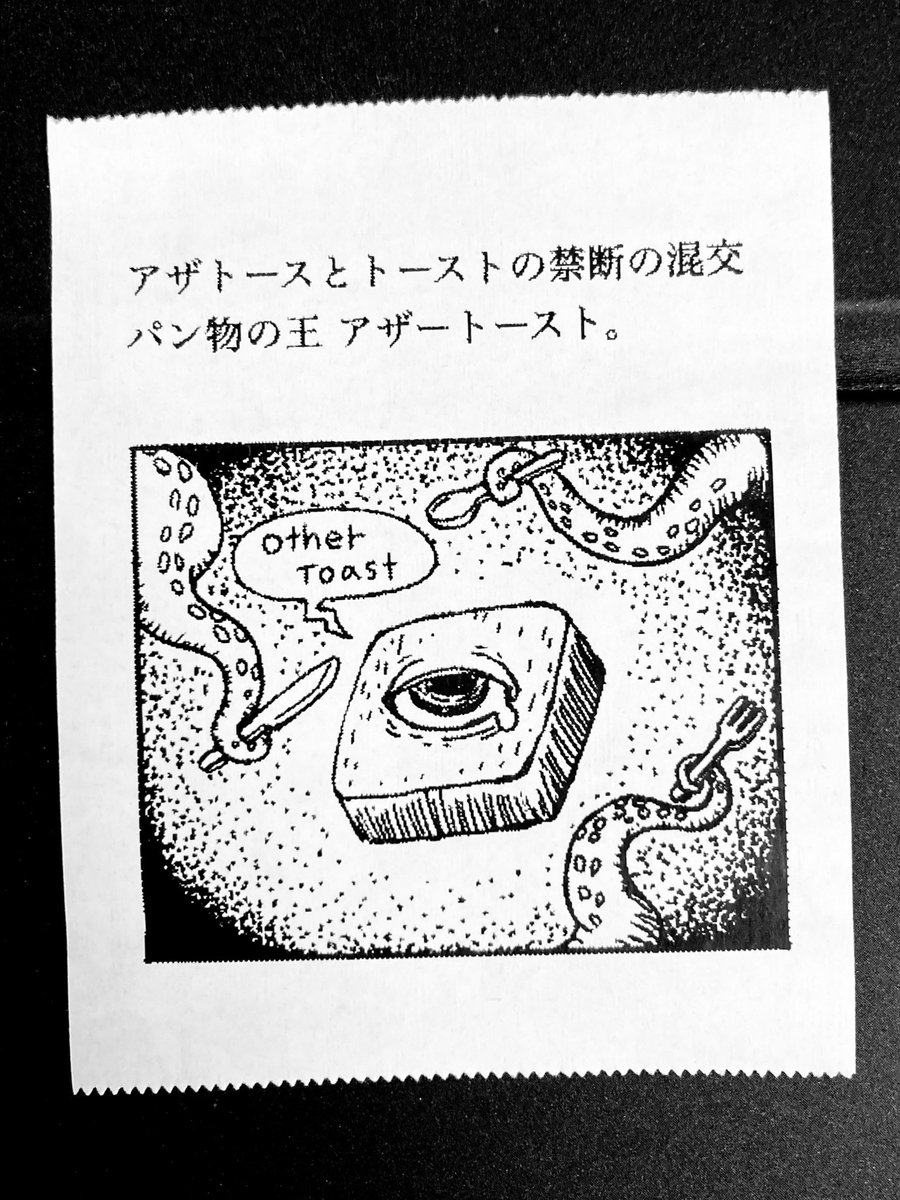 アザトースとトーストの禁断の混交
パン物の王 アザートースト。
other
Toast